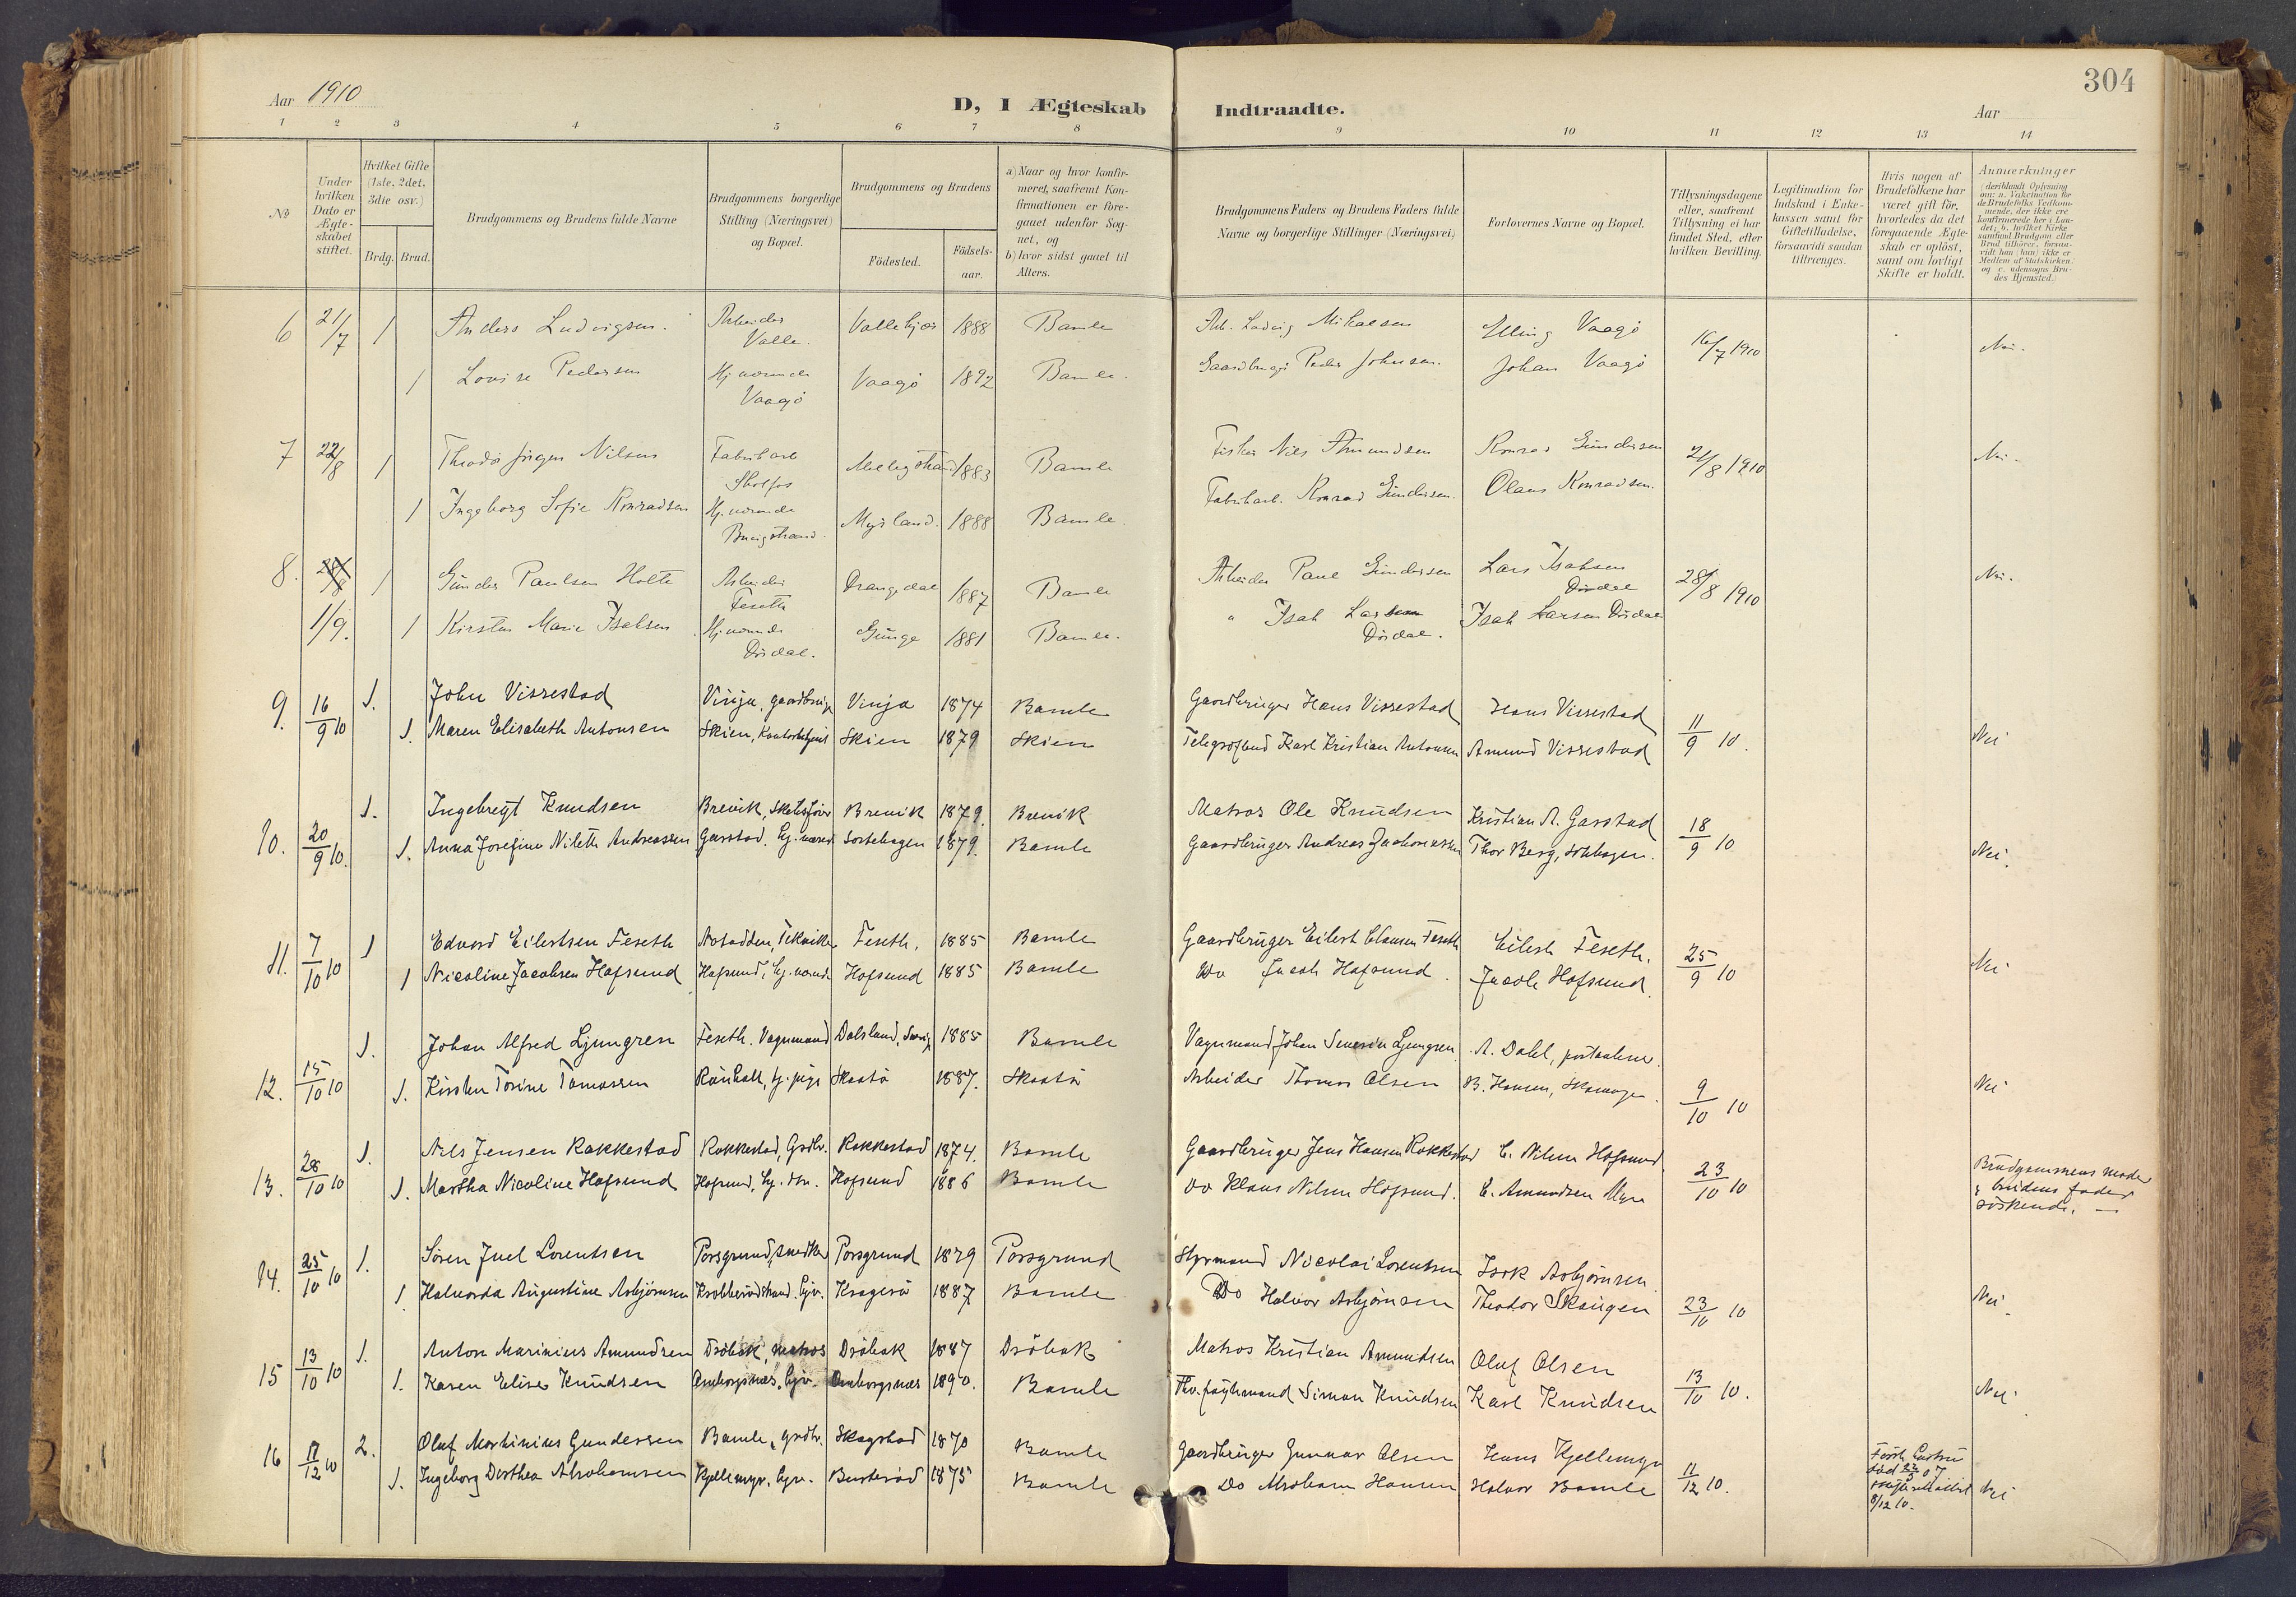 304
Aar 1910
D, I Ægteskab Indtraadte.
Aar
1 2 3 4 5 6 7 8 9 10 11 12 13 14
№
Under hvilken Dato er Ægteskabet stiftet.
Hvilket Gifte (1ste, 2det, 3die osv.)
Brdg. Brud.
Brudgommens og Brudens fulde Navne
Brudgommens borgerlige Stilling (Næringsvei) og Bopæl.
Brudgommens og Brudens
Födested.
Födselsaar.
a) Naar og hvor konfirmeret, saafremt Konfirmationen er foregaaet udenfor Sognet, og
b) hvor sidst gaaet til Alters.
Brudgommens Faders og Brudens Faders fulde Navne og borgerlige Stillinger (Næringsvei)
Forlovernes Navne og Bopæl.
Tillysningsdagene eller, saafremt Tillysning ei har fundet Sted, efter hvilken Bevilling.
Legitimation for Indskud i Enkekassen samt for Giftetilladelse, forsaavidt saadan tiltrænges.
Hvis nogen af Brudefolkene har været gift för, hvorledes da det foregaaende Ægteskab er oplöst, samt om lovligt Skifte er holdt.
Anmerkninger (deriblandt Oplysning om: a. Vakcination for de Brudefolks Vedkommende, der ikke ere konfirmerede her i Landet; b. hvilket Kirkesamfund Brudgom eller Brud tilhörer, forsaavidt han (hun) ikke er Medlem af Statskirken; og c. udensogns Brudes Hjemsted.
6 21/7 1 Anders Ludvigsen. Arbeider Valle. Vallekjær 1888 Bamle Arb. Ludvig Mikaelsen Elling Vaagö 16/7 1910 Nei.
1 Lovise Pedersen Hj. værende Vaagö Vaagö 1892 Bamle. Gaardbruger Peder Johnsen. Johan Vaagö
7 22/8 1 Theodor Jörgen Nilsen Fabrikarb. Skotfos 1883 Bamle Fisker Nils Amundsen Konrad Gundersen 21/8 1910 Nei.
1 Ingeborg Sofie Konradsen Hj. værende Myrland. 1888 Bamle. Fabrikarb. Konrad Gundersen. Olaus Konradsen.
8. 1 Gunder Paulsen Holte Arbeider Feseth Drangedal 1887 Bamle Arbeider Paul Gundersen Lars Isaksen Dördal 28/8 1910 Nei.
1/9. 1 Kirsten Marie Isaksen Hj. værende Dördal. Gunge 1881 Bamle. " Isak Larsen Dördal. Isak Larsen Dördal
9. 16/9 10 1. John Vissestad Vinja, gaardbruger Vinja 1874 Bamle Gaardbruger Hans Vissestad Hans Vissestad 11/9 10. Nei
1. Maren Elisabeth Antonsen Skien, Skien 1879 Skien Karl Kristian Antonsen Amund Vissestad
10. 20/9 10. 1. Ingebregt Knudsen Brevik, Brevik 1879. Brevik Matros Ole Knudsen Kristian A. Gasstad 18/9 10 Nei.
1. Anna Josefine Nileth Andreassen Gasstad, hj. værend Sortehagen 1879. Bamle Gaardbruger Andreas Thor Berg,
11. 7/10 10 1 Edvard Eilertsen Feseth Notodden, Tekniker Feseth. 1885 Bamle Gaardbruger Eilert Clausen Feseth Eilert Feseth. 25/9 10 Nei
1 Nicoline Jacobsen Hafsund Hafsund, hj. værende Hafsund 1885 Bamle Do Jacob Hafsund. Jacob Hafsund.
12. 15/10 10 1. Johan Alfred Ljungren Feseth. Vognmand Dalsland, Sverige 1885 Bamle Vognmand Johan Severin Ljungren A. Dahl, 9/10 10 Nei
1. Kirsten Torine Tomassen hj. pige Skaatö 1887. Skaatö Arbeider Thomas Olsen B. Hansen,
13. 28/10 10 1. Nils Jensen Rakkestad Rakkestad, Grdbr. Rakkestad 1874. Bamle Gaardbruger Jens Hansen Rakkestad C. Nilsen Hafsund 23/10 10 Brudgommens moder & brudens fader söskende. —
1. Martha Nicoline Hafsund Hafsund, hj. dtr. Hafsund 1886 Bamle Do Klaus Nilsen Hafsund. E. Amundsen Myra
14. 25/10 10 1. Sören Juel Lorentsen Porsgrund, snedker Porsgrund 1879 Porsgrund Styrmand Nicolai Lorentsen Isak Asbjörnsen 23/10 10 Nei
1. Halvorda Augustine Asbjörnsen Hjv. Kragerö 1887 Bamle Do Halvor Asbjörnsen Theodor Skaugen
15 13/10 10 1. Anton Marinius Amundsen Dröbak, matros Dröbak 1887 Dröbak Matros Kristian Amundsen Oluf Olsen 13/10 10. Nei
1. Karen Elise Knudsen hjv. 1890. Bamle Simon Knudsen Karl Knudsen
16 17/12 10 2. Oluf Martinius Gundersen Bamle, grdbr. Skogstad 1870 Bamle Gaardbruger Gunnar Olsen Hans Kjellemyr 11/12 10. Nei
1. Ingeborg Dorthea Abrahamsen Kjellemyr. hjv. Busteröd 1875 Bamle Do Abraham Hansen Halvor Bamle